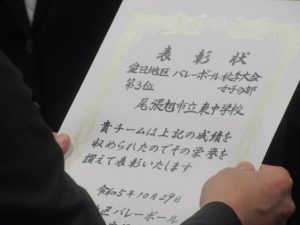 表彰状
愛日地区 バレーボール秋季大会
第3位 女子の部
尾張旭市立東中学校
貴チームは上記の成績を
収められたのでその栄誉を
讃えて表彰いたします
令和5年10月29日
地区バレーボール